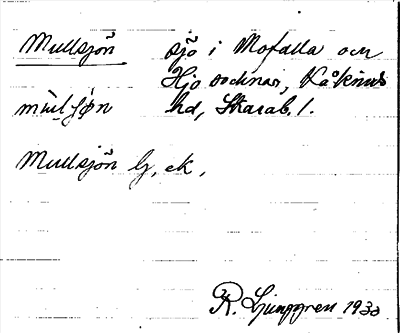 Mullsjön sjö i Mofalla och
Hjo socknar, Kåkinds
hd, Skarab. l.
Mullsjön ly, ek,
R. Ljunggren 1933